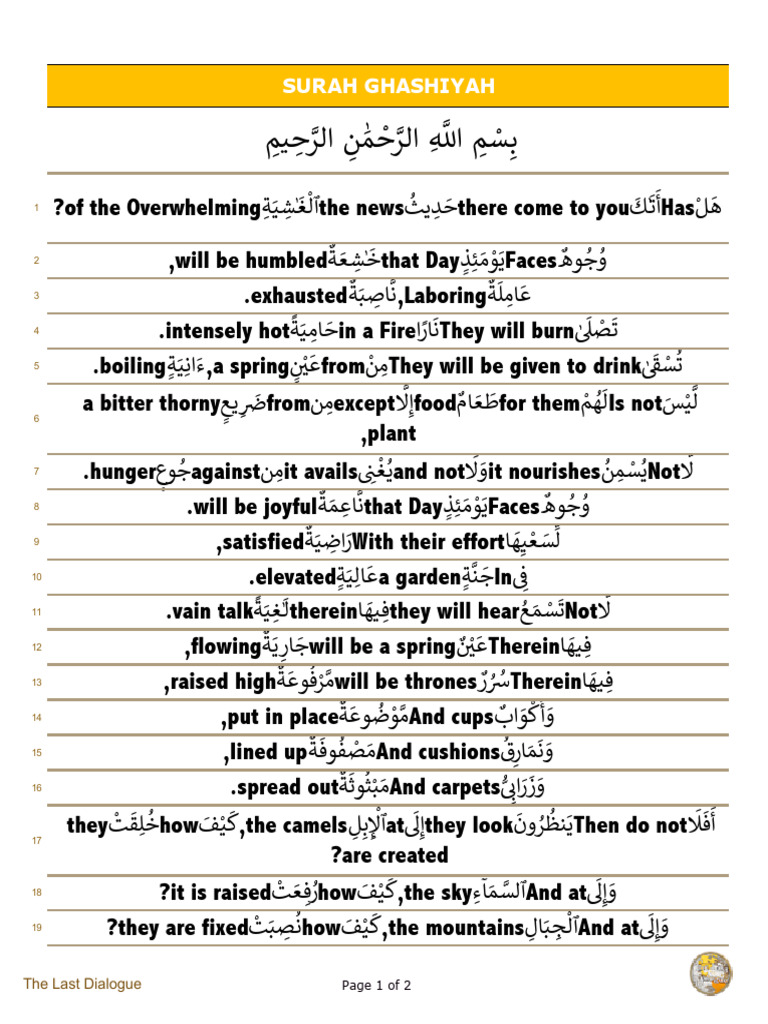 SURAH GHASHIYAH
بِسْمِ اللَّهِ الرَّحْمَٰنِ الرَّحِيمِ
1 هَلْHas أَتَىٰكَthere come to you حَدِيثُthe news ٱلْغَٰشِيَةِof the Overwhelming?
2 وُجُوهٌFaces يَوْمَئِذٍthat Day خَٰشِعَةٌwill be humbled,
3 عَامِلَةٌLaboring, نَّاصِبَةٌexhausted.
4 تَصْلَىٰThey will burn نَارًاin a Fire حَامِيَةًintensely hot.
5 تُسْقَىٰThey will be given to drink مِنْfrom عَيْنٍa spring, ءَانِيَةٍboiling.
6 لَّيْسَIs not لَهُمْfor them طَعَامٌfood إِلَّاexcept مِنfrom ضَرِيعٍa bitter thorny
plant,
7 لَّاNot يُسْمِنُit nourishes وَلَاand not يُغْنِىit avails مِنagainst جُوعٍhunger.
8 وُجُوهٌFaces يَوْمَئِذٍthat Day نَّاعِمَةٌwill be joyful.
9 لِّسَعْيِهَاWith their effort رَاضِيَةٌsatisfied,
10 فِىIn جَنَّةٍa garden عَالِيَةٍelevated.
11 لَّاNot تَسْمَعُthey will hear فِيهَاtherein لَٰغِيَةًvain talk.
12 فِيهَاTherein عَيْنٌwill be a spring جَارِيَةٌflowing,
13 فِيهَاTherein سُرُرٌwill be thrones مَّرْفُوعَةٌraised high,
14 وَأَكْوَابٌAnd cups مَّوْضُوعَةٌput in place,
15 وَنَمَارِقُAnd cushions مَصْفُوفَةٌlined up,
16 وَزَرَابِىُّAnd carpets مَبْثُوثَةٌspread out.
17 أَفَلَاThen do not يَنظُرُونَthey look إِلَىat ٱلْإِبِلِthe camels, كَيْفَhow خُلِقَتْthey
are created?
18 وَإِلَىAnd at ٱلسَّمَآءِthe sky, كَيْفَhow رُفِعَتْit is raised?
19 وَإِلَىAnd at ٱلْجِبَالِthe mountains, كَيْفَhow نُصِبَتْthey are fixed?
The Last Dialogue
Page 1 of 2